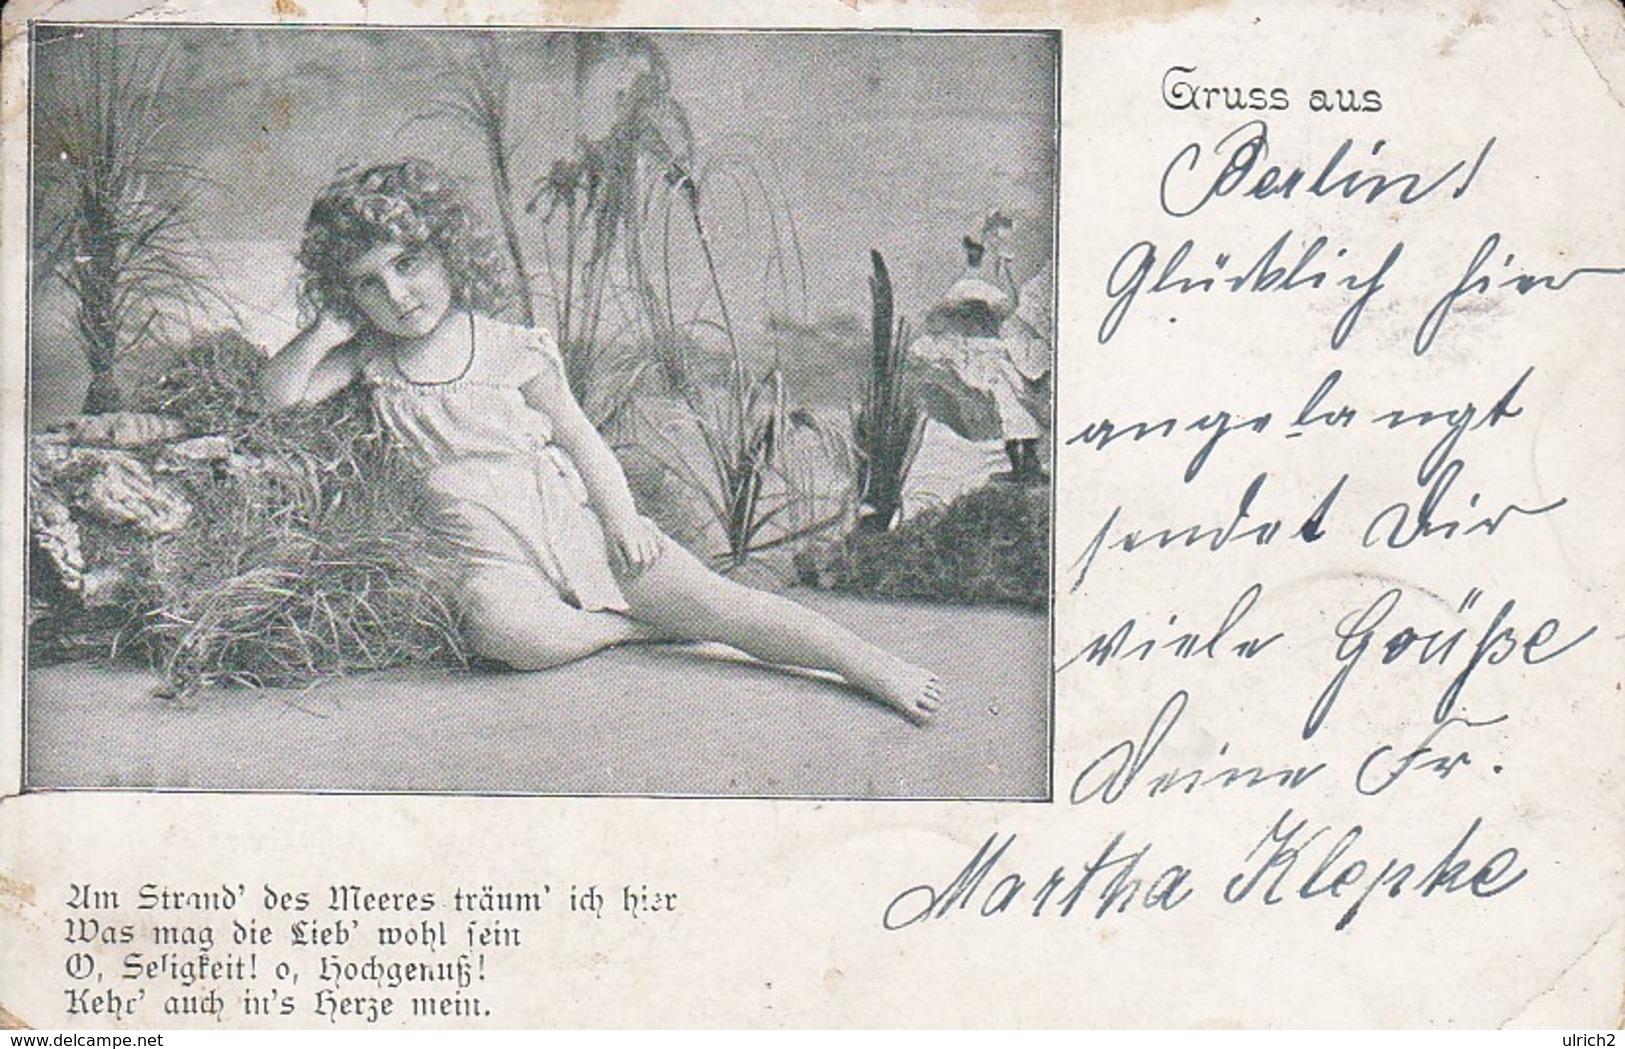 Gruss aus
Berlin!
Glücklich hier
angelangt
sendet Dir
viele Grüße
Deine Fr.
Martha Klepke
Am Strand' des Meeres träum' ich hier
Was mag die Lieb' wohl sein
O, Seligkeit! o, Hochgenuß!
Kehr' auch in's Herze mein.
www.delcampe.net
ulrich2